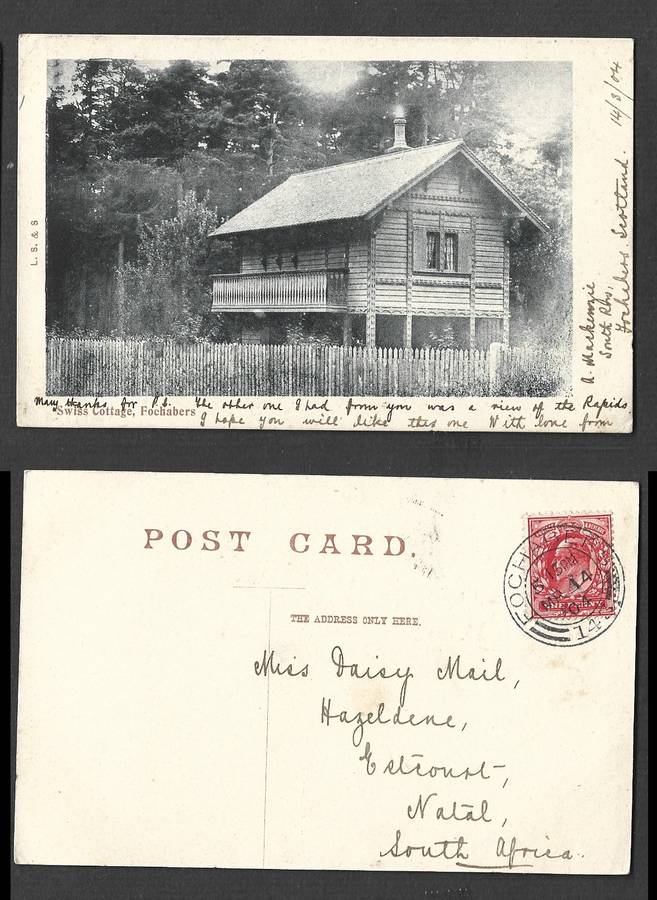 L. S. & S
A. Mackenzie
South Rd.,
Fochabers, Scotland. 14/3/04
Many thanks for P.C. The other one I had from you was a view of the Rapids.
Swiss Cottage, Fochabers
I hope you will like this one With love from
POST CARD.
THE ADDRESS ONLY HERE.
FOCHABERS
MR 14
04
144
Miss Daisy Mail,
Hazeldene,
Estcourt,
Natal,
South Africa.